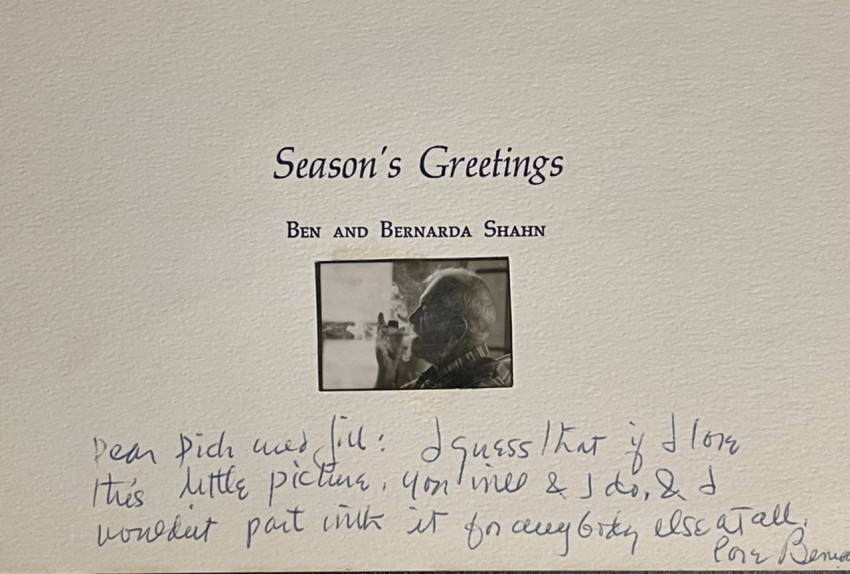 Season's Greetings
Ben and Bernarda Shahn
Dear Dick and Jill: I guess that if I love
this little picture, you will & I do, & I
wouldn't part with it for anybody else at all.
love Berna